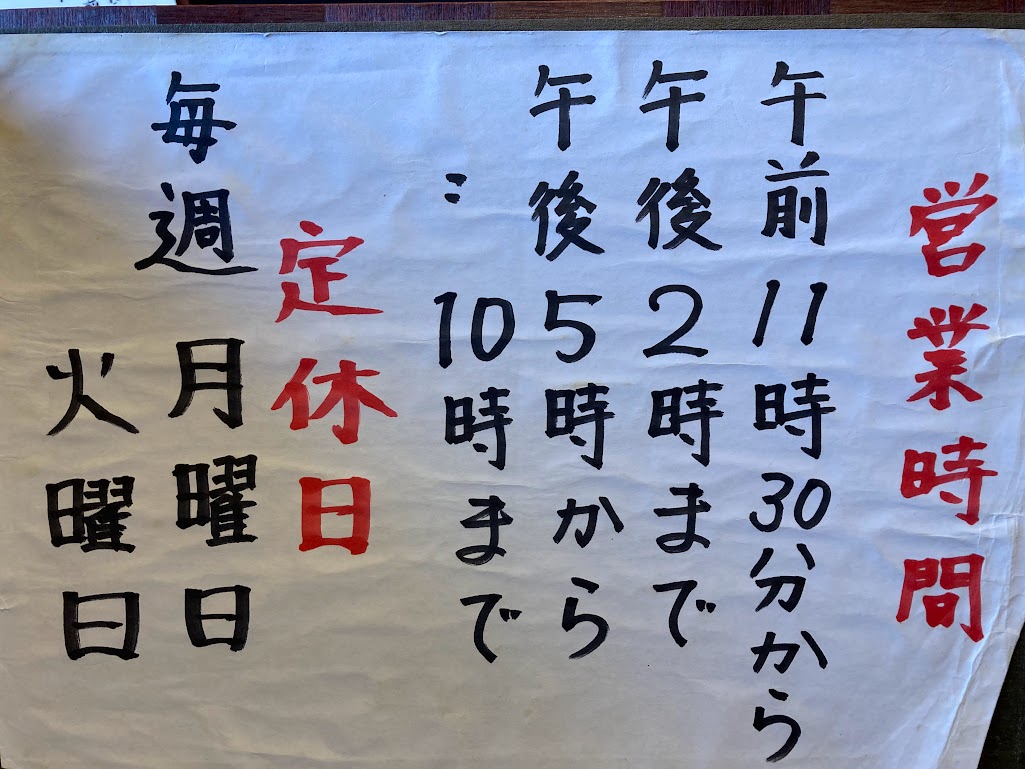 営業時間
午前11時30分から
午後2時まで
午後5時から
〃10時まで
定休日
毎週月曜日
火曜日